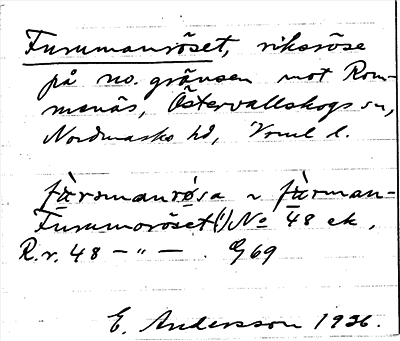 Furumanröset, riksröse
på no. gränsen mot Rom-
menäs, Östervallskogs sn,
Nordmarks hd, Vrml l.
fùromanrøsa ~ fùrman-
Furumoröset(!) No 48 ek,
R.r. 48 — " — 69
E. Andersson 1936.